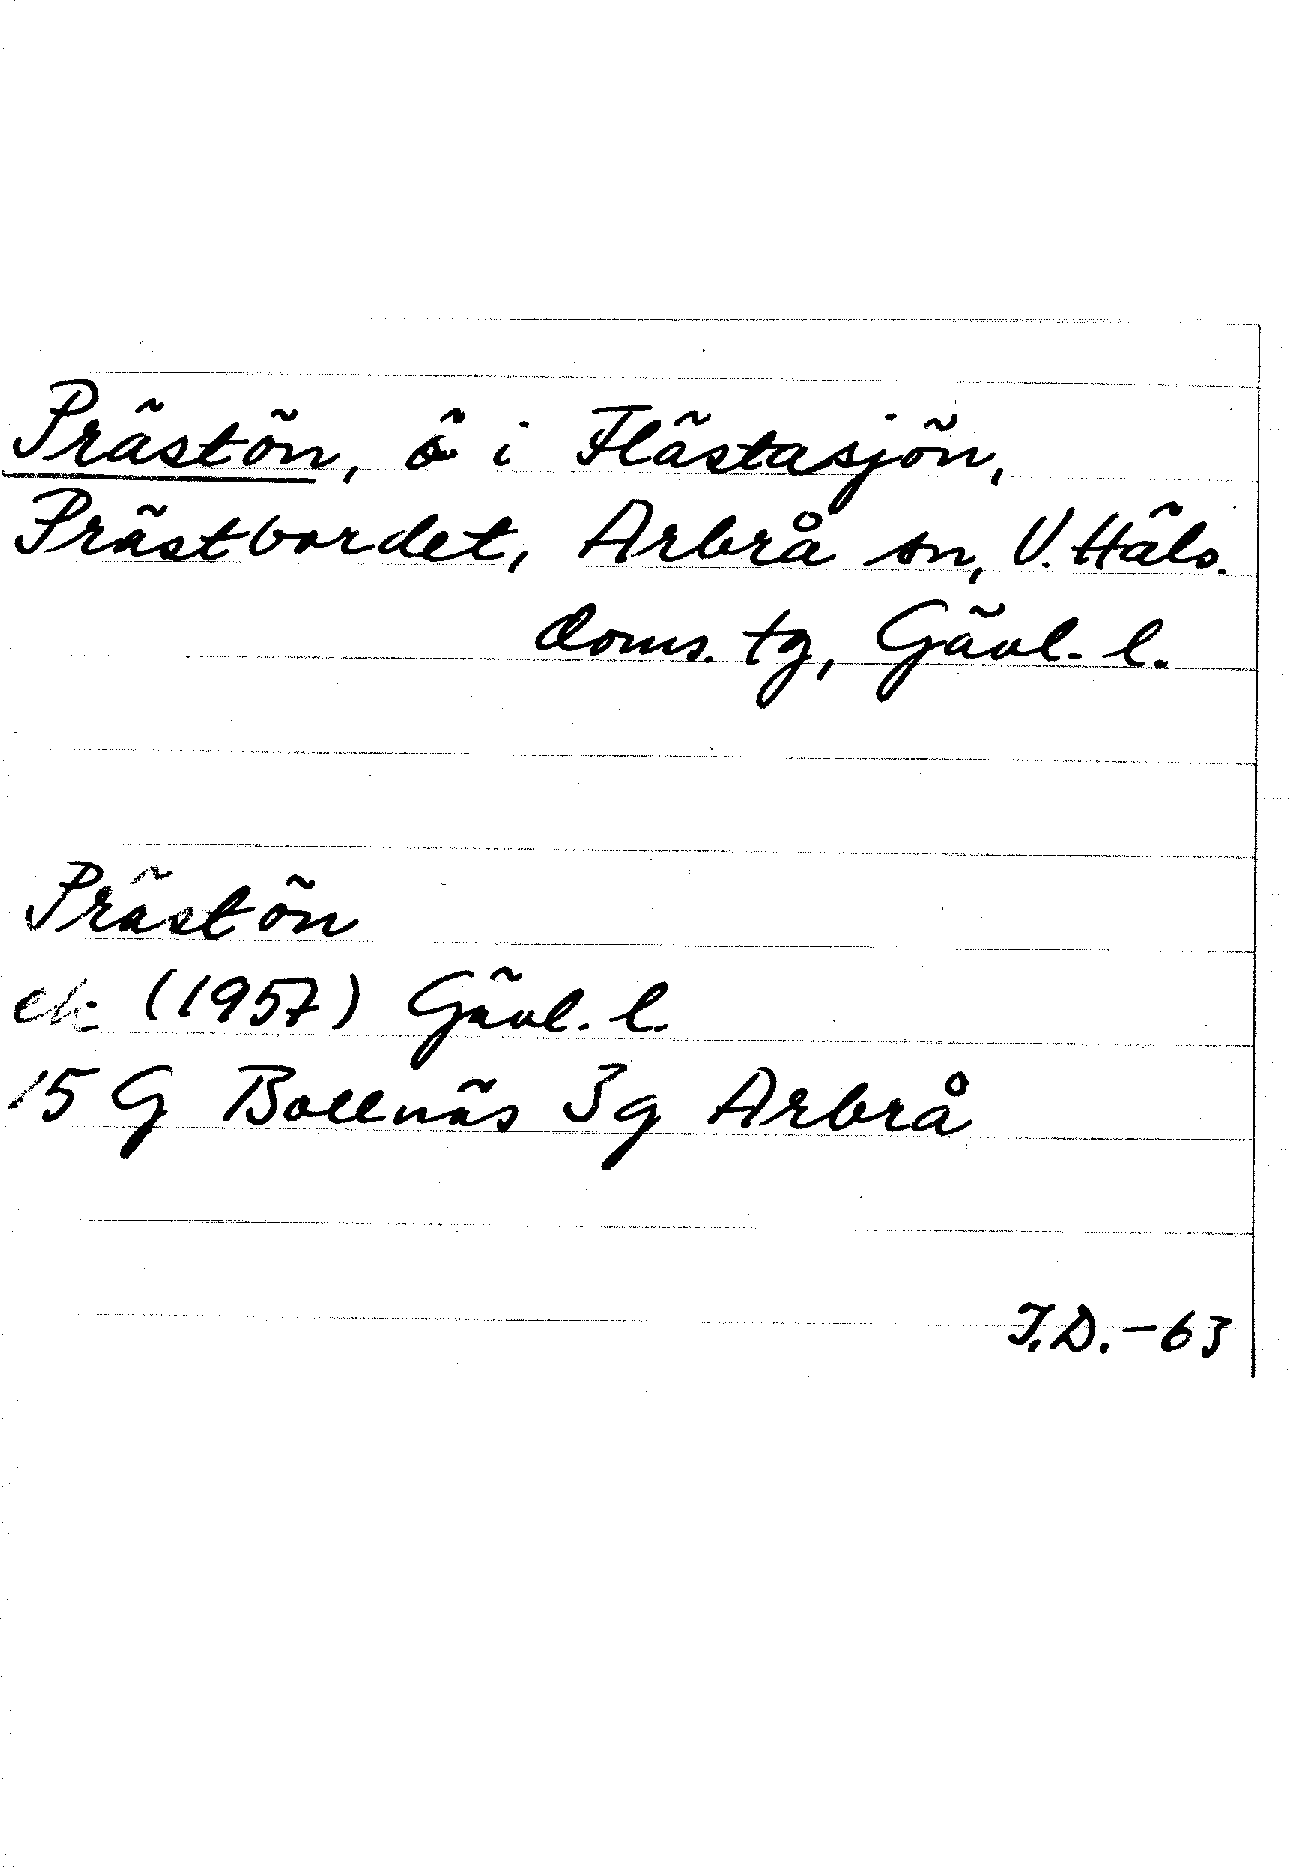 Prästön, ö i Flästasjön,
Prästbordet, Arbrå sn, V. Häls.
doms. tg, Gävl. l.
Prästön
ek (1957) Gävl. l.
15 G Bollnäs 3g Arbrå
T.D. -63